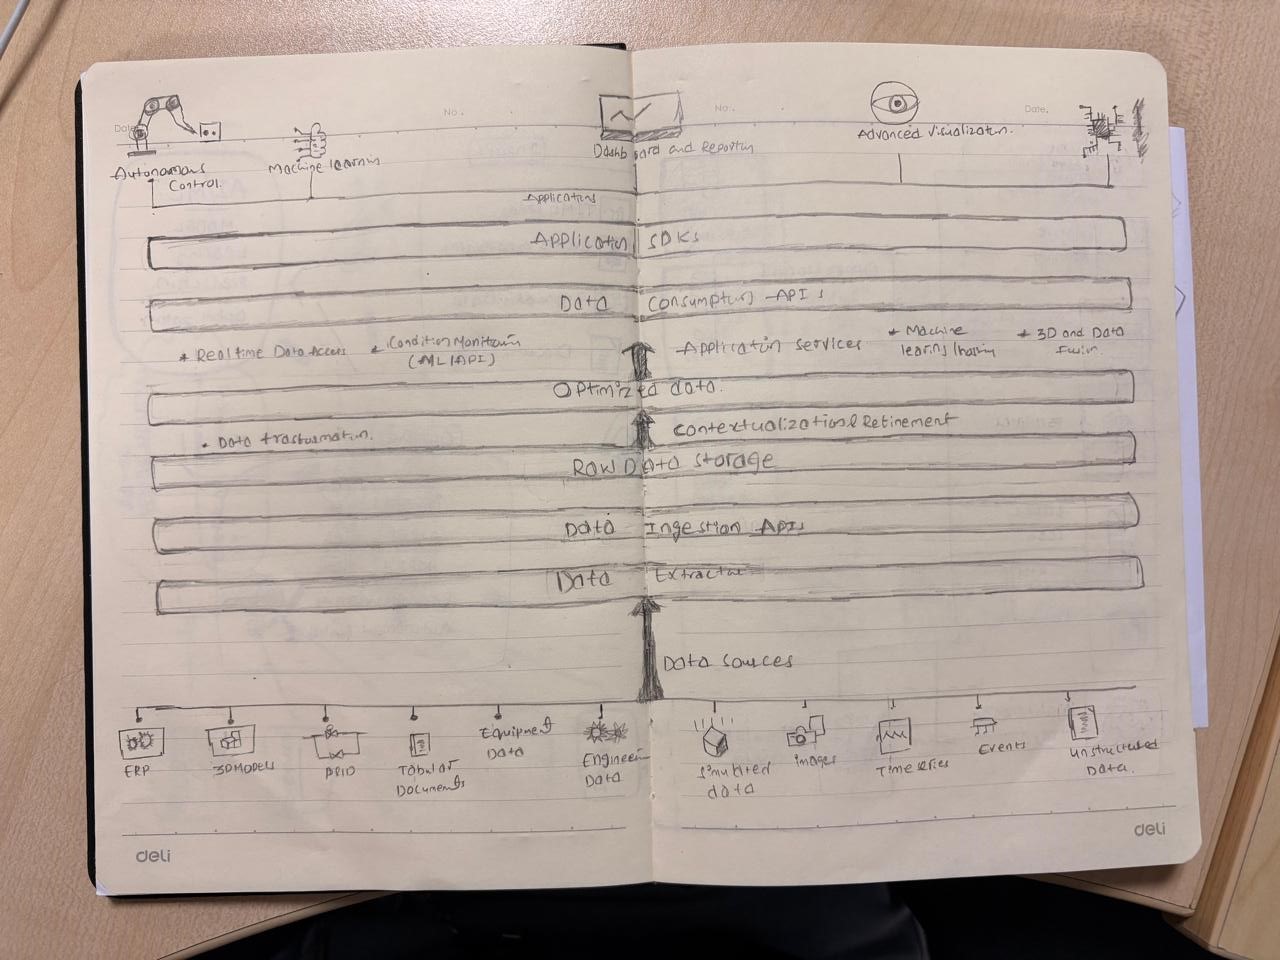 Date:
No:.
No:.
Date:
Autonomous
Control.
Machine learnin
Dashb oard and Reportin
Advanced Visualization.
Applications
Application SDKs
Data Consumption APIs
* Realtime Data Access
* Condition Monitorin
(ML/API)
Application services
* Machine
* 3D and Data
Optimized data.
• Data trasformation.
Contextualization & Retinement
Raw Data storage
Data Ingestion APIs
Data Extractor
Data sources
ERP
3D MODELS
Tabular
Documents
Equipment
Data
Engineerin
Data
Simulated
data
images
Time series
Events
Unstructured
Data.
deli
deli